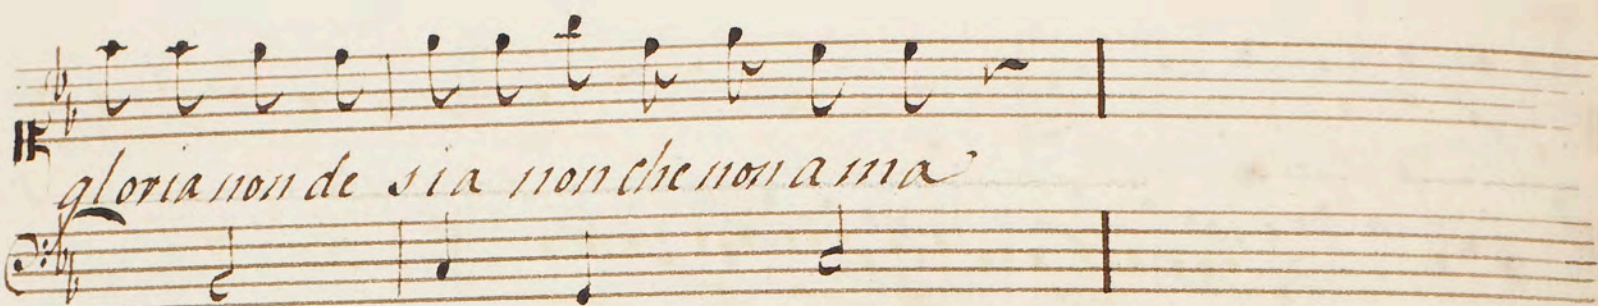 gloria non de sia non che non ama